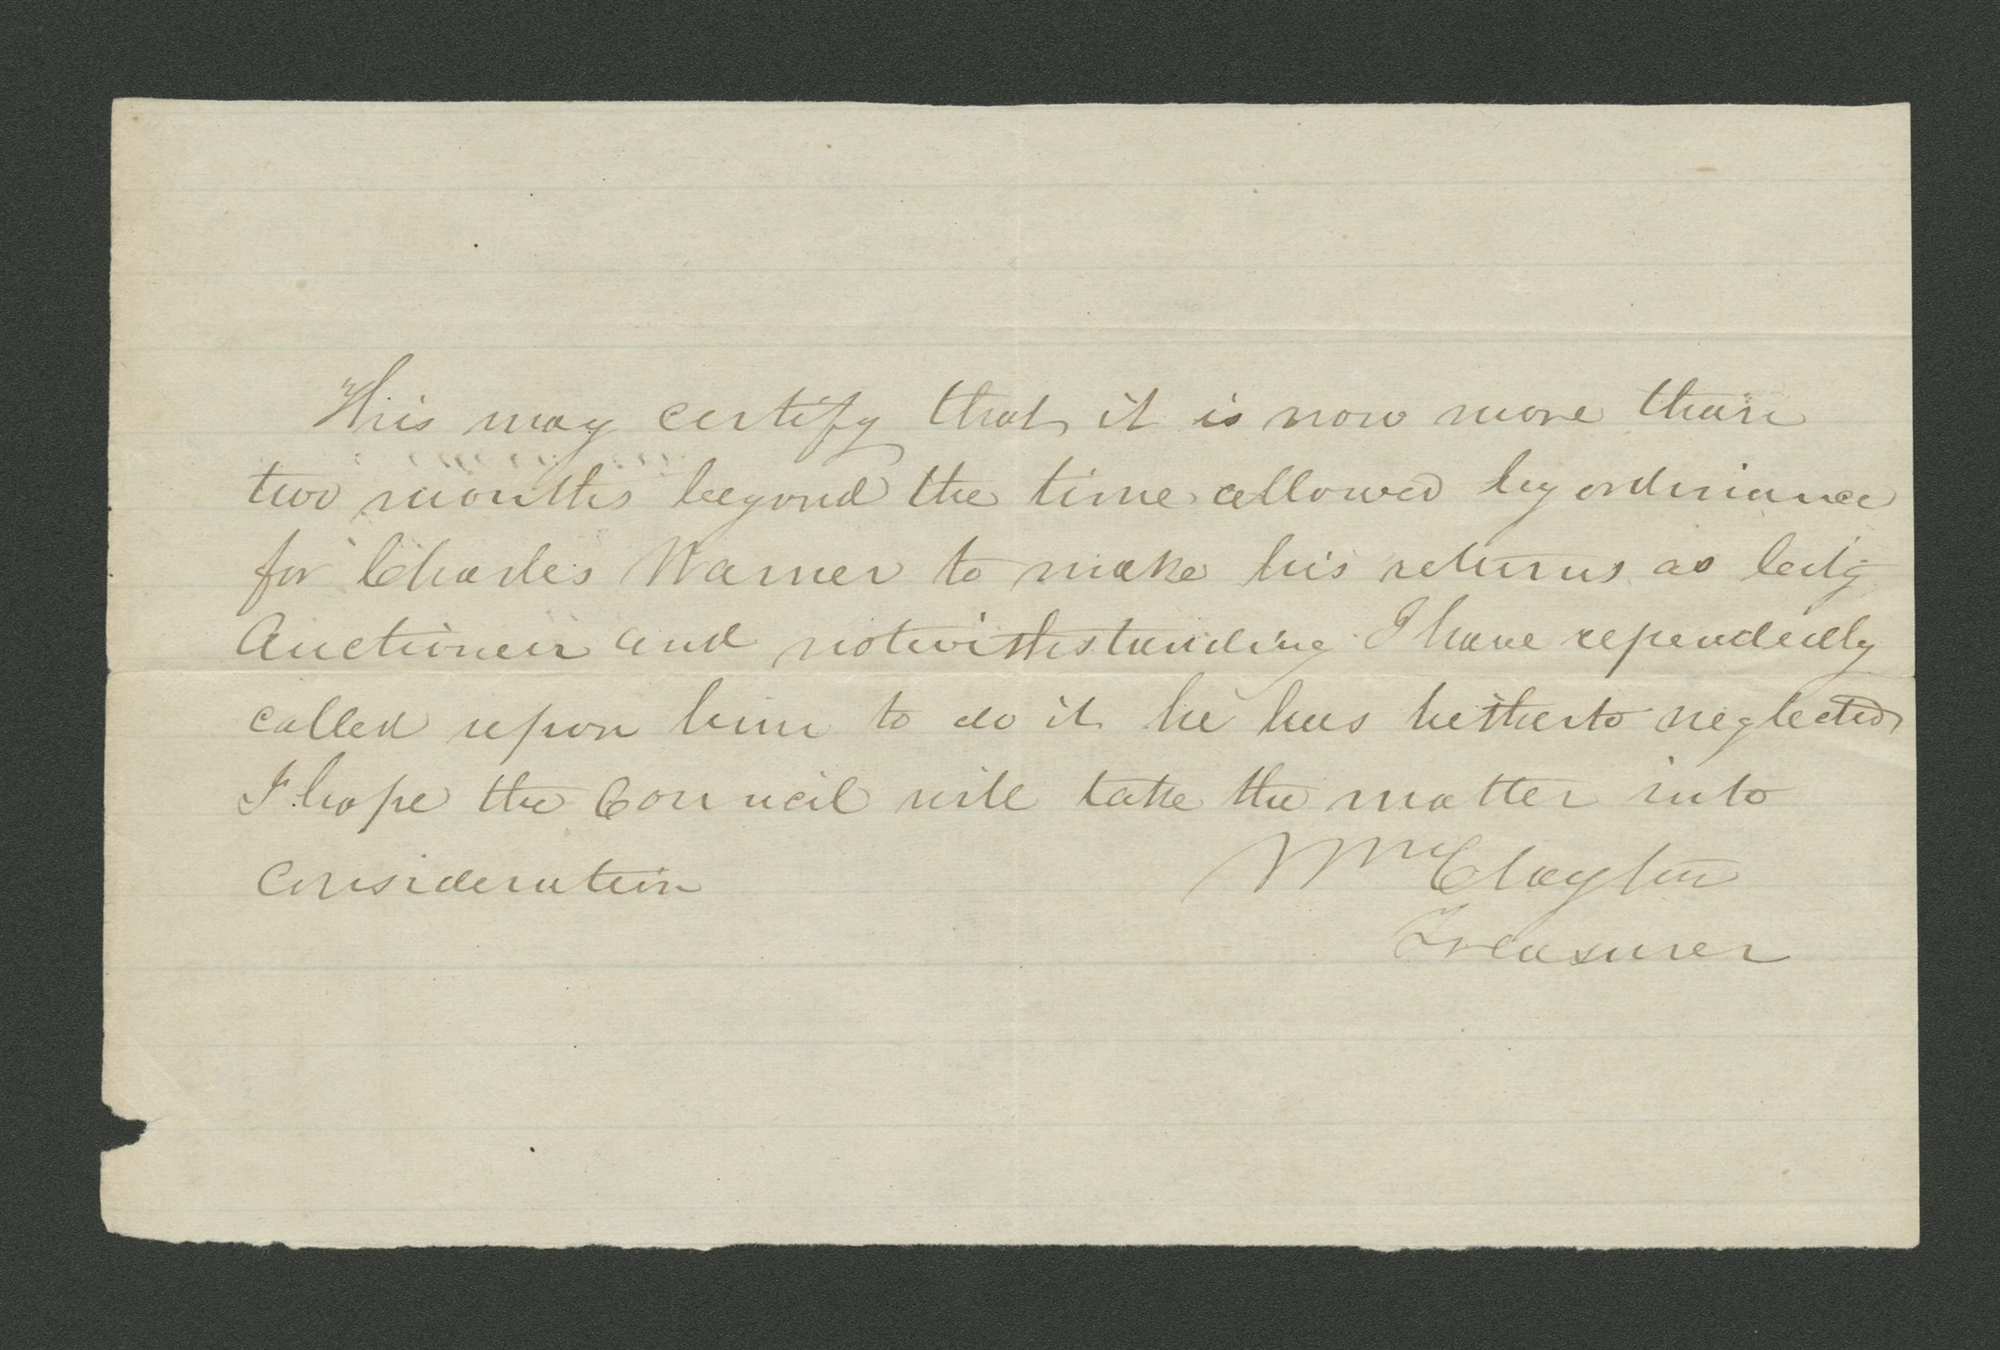 This may certify that it is now more than
two months beyond the time allowed by ordinance
for Charles Warner to make his returns as City
Auctioneer and notwithstanding I have rependedly
called upon him to do it he has hitherto neglected
I hope the Council will take the matter into
Consideration Wm Clayton
Treasurer